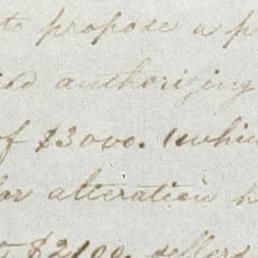 to propose a p
authorizing
of $3000. which
for alteration h
$2100. dollars